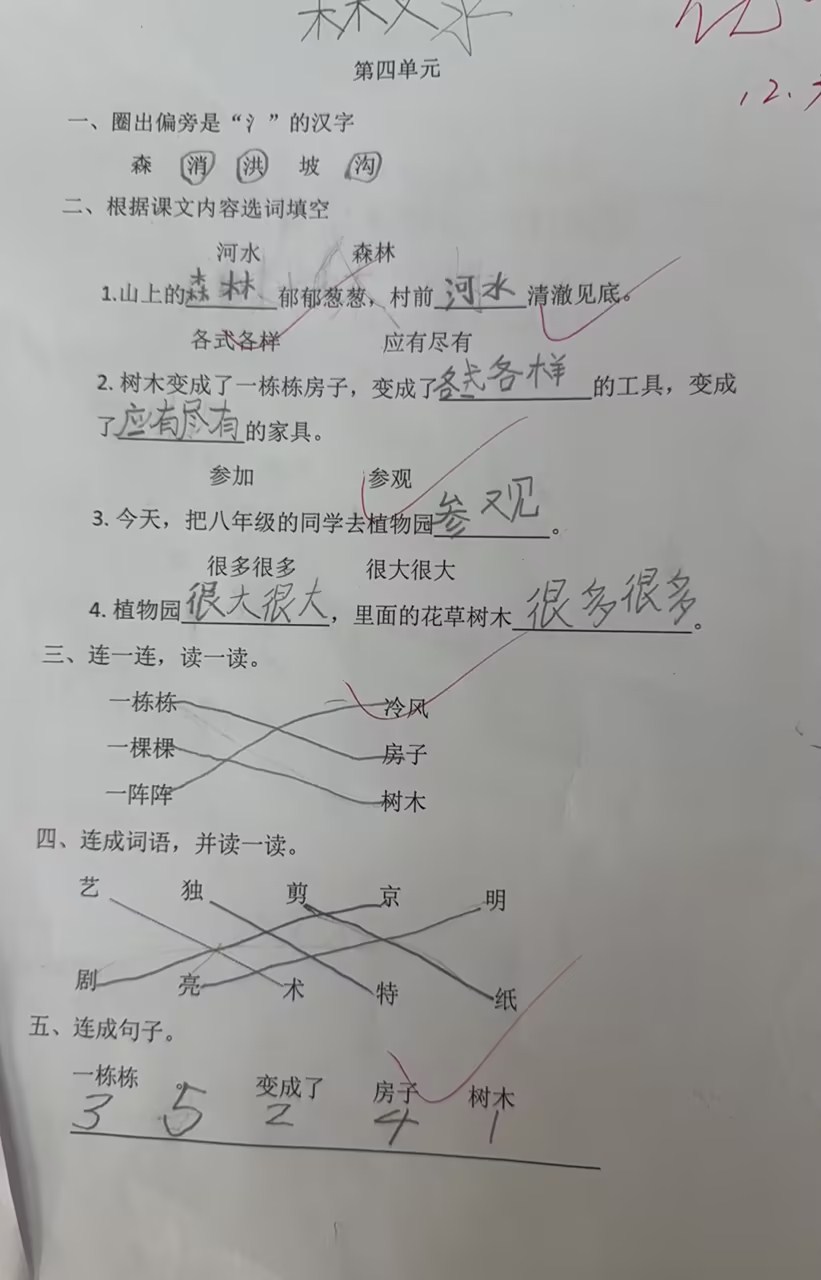 第四单元
一、圈出偏旁是“氵”的汉字
森 消 洪 坡 沟
二、根据课文内容选词填空
河水 森林
1.山上的森林郁郁葱葱，村前河水清澈见底。
各式各样 应有尽有
2. 树木变成了一栋栋房子，变成了各式各样的工具，变成
了应有尽有的家具。
参加 参观
3. 今天，把八年级的同学去植物园参观。
很多很多 很大很大
4. 植物园很大很大，里面的花草树木很多很多。
三、连一连，读一读。
一栋栋 冷风
一棵棵 房子
一阵阵 树木
四、连成词语，并读一读。
艺 独 剪 京 明
剧 亮 术 特 纸
五、连成句子。
一栋栋 。 变成了 房子 树木
3 5 2 4 1